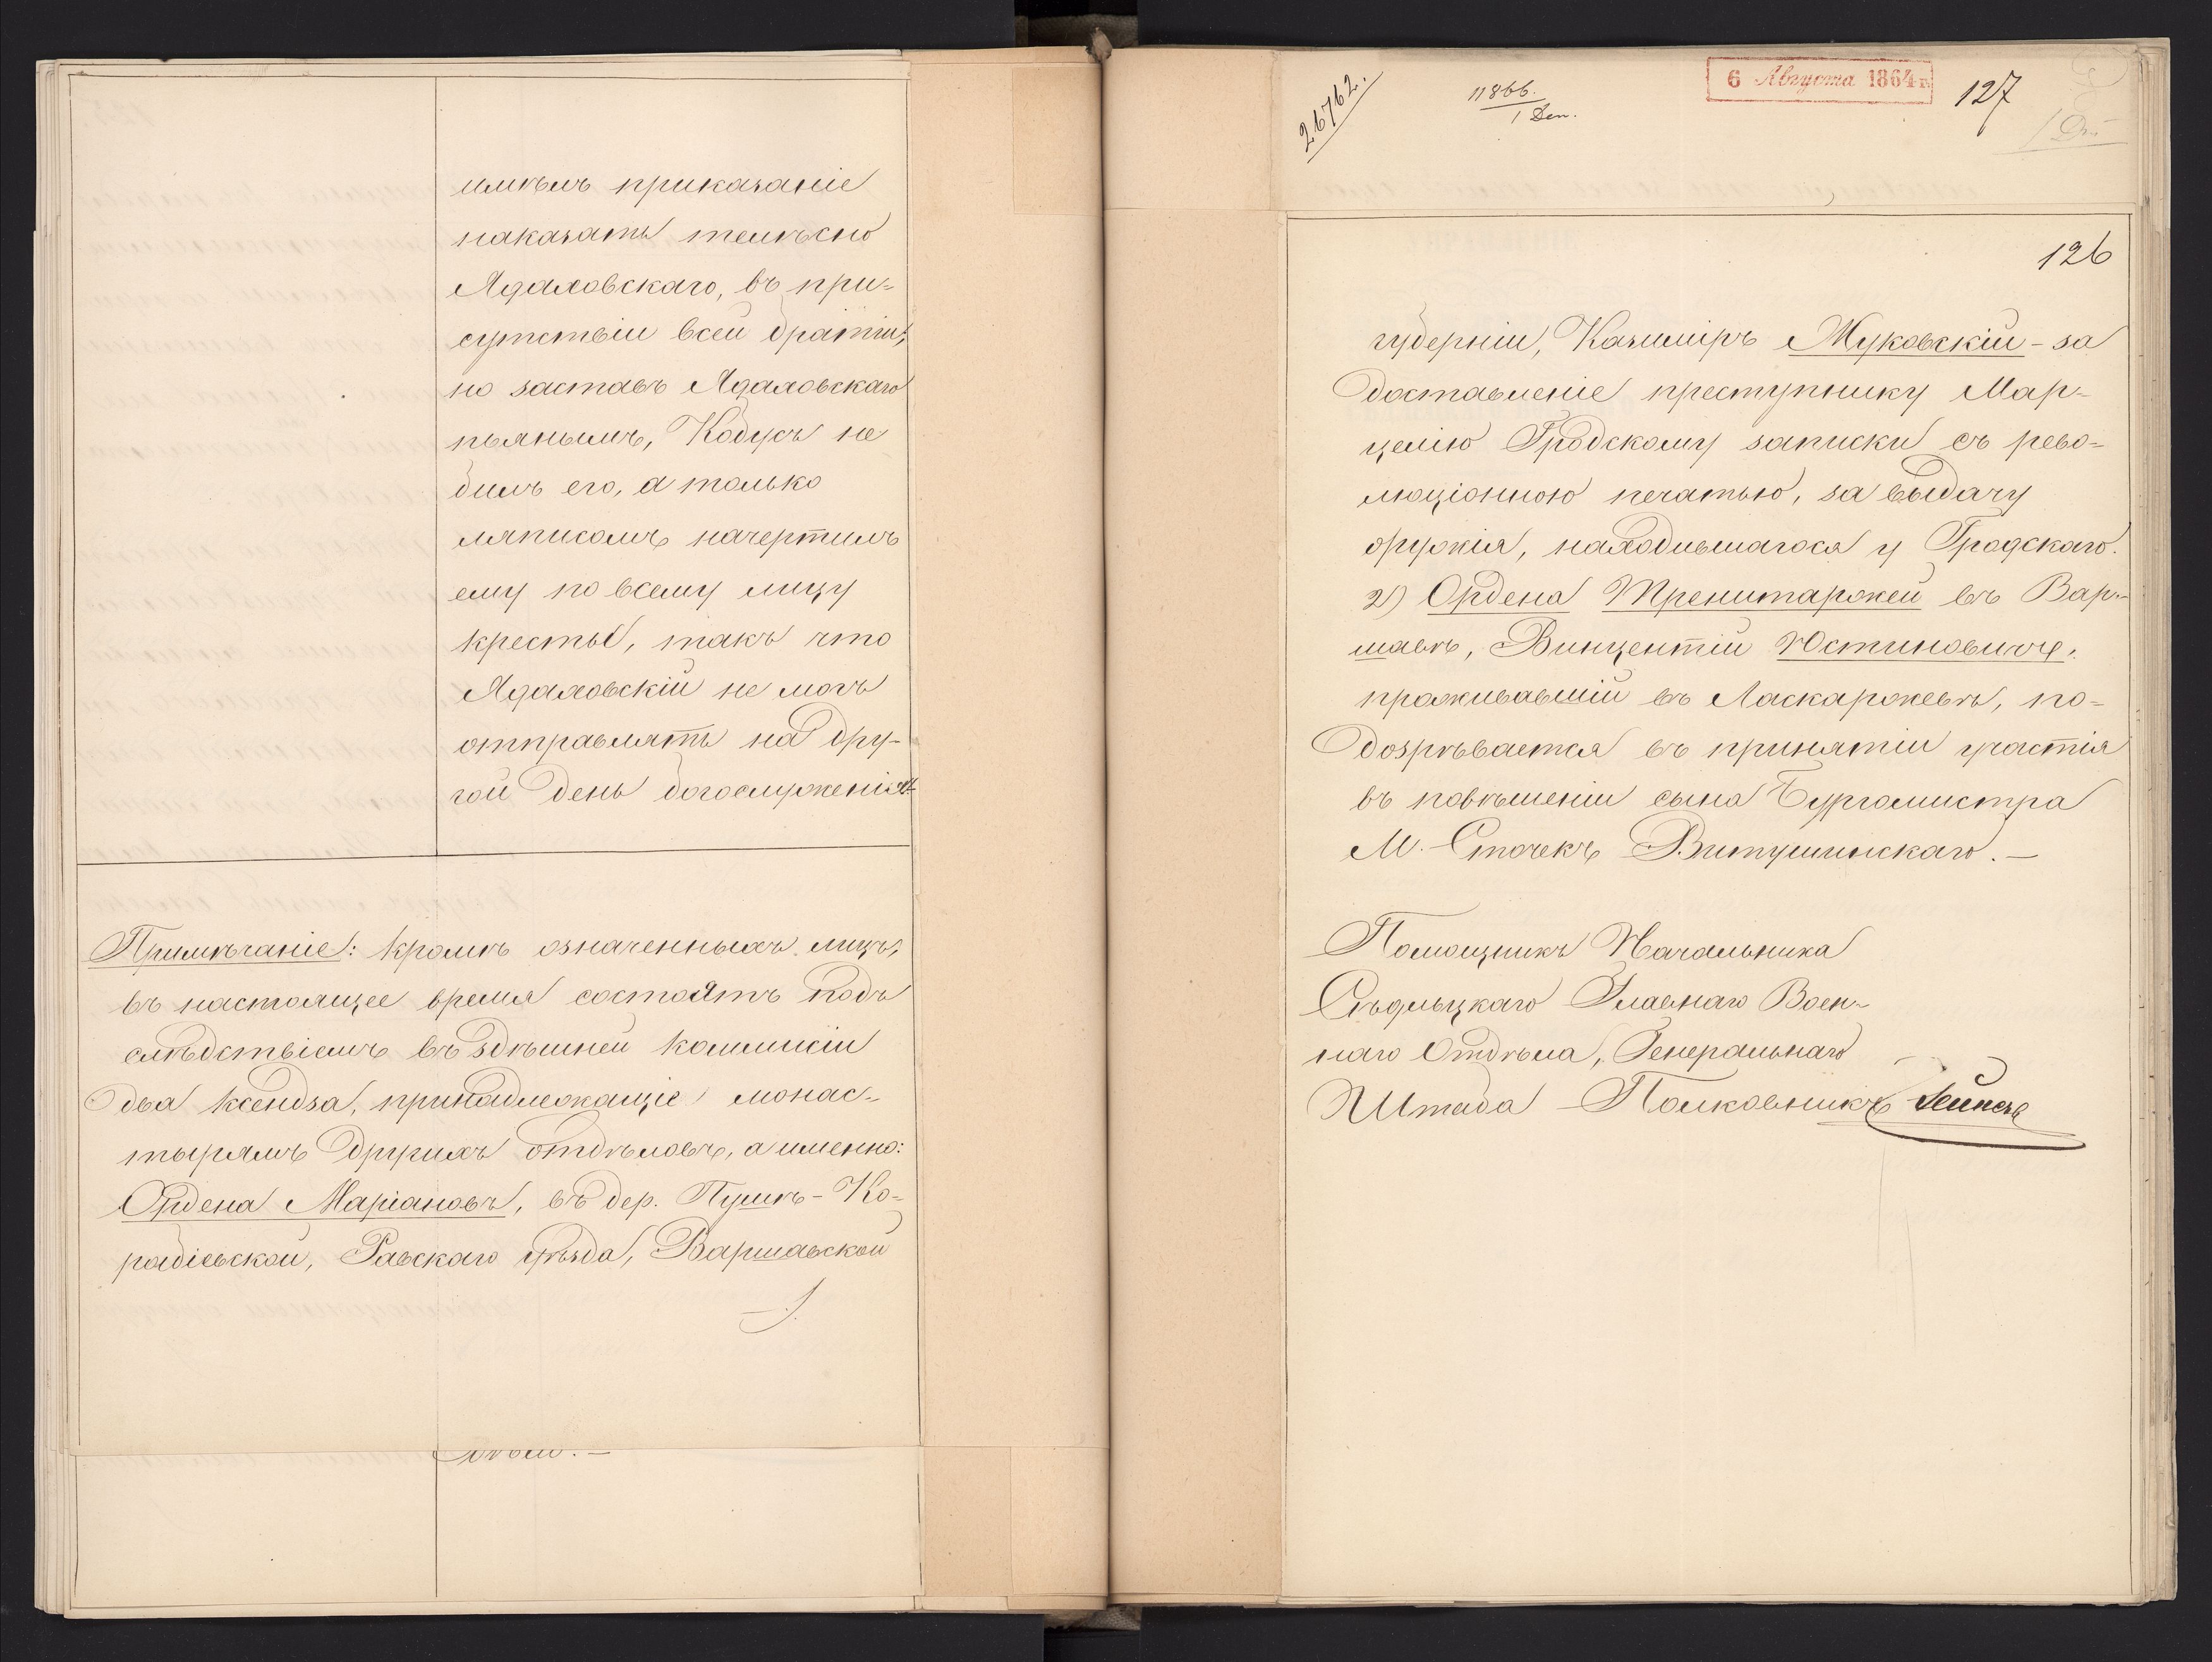 имѣлъ приказаніе
наказать телѣсно
Ядаловскаго, въ при-
сутствіи всей братіи;
но заставъ Ядаловскаго
пьянымъ, Кобусъ не
билъ его, а только
ляписомъ начертилъ
ему по всему лицу
кресты, такъ что
Ядаловскій не могъ
отправлять на дру-
гой день богослуженія.
Примѣчаніе: Кромѣ означенныхъ лицъ,
въ настоящее время состоятъ подъ
слѣдствіемъ въ здѣшней коммисіи
два ксендза, принадлежащіе монас-
тырямъ другихъ отдѣловъ, а именно:
Ордена Маріановъ, въ дер. Пущѣ-Ко-
рабіевской, Равскаго уѣзда, Варшавской
26762.
11866.
1 Деп.
6 Августа 1864 г.
127
126
губерніи, Казиміръ Жуковскій - за
доставленіе преступнику Мар-
целію Гродскому записки съ рево-
люціонною печатью, за выдачу
оружія, находившагося у Гродскаго.
2) Ордена Тренитаржей въ Вар-
шавѣ, Винцентій Юстиновичъ,
проживавшій въ Ласкаржевѣ, по-
дозрѣвается въ принятіи участія
въ повѣшеніи сына Бургомистра
М. Сточекъ Витушинскаго. —
Помощникъ Начальника
Сѣдльцкаго Главнаго Воен-
наго Отдѣла, Генеральнаго
Штаба Полковникъ Гейнсъ